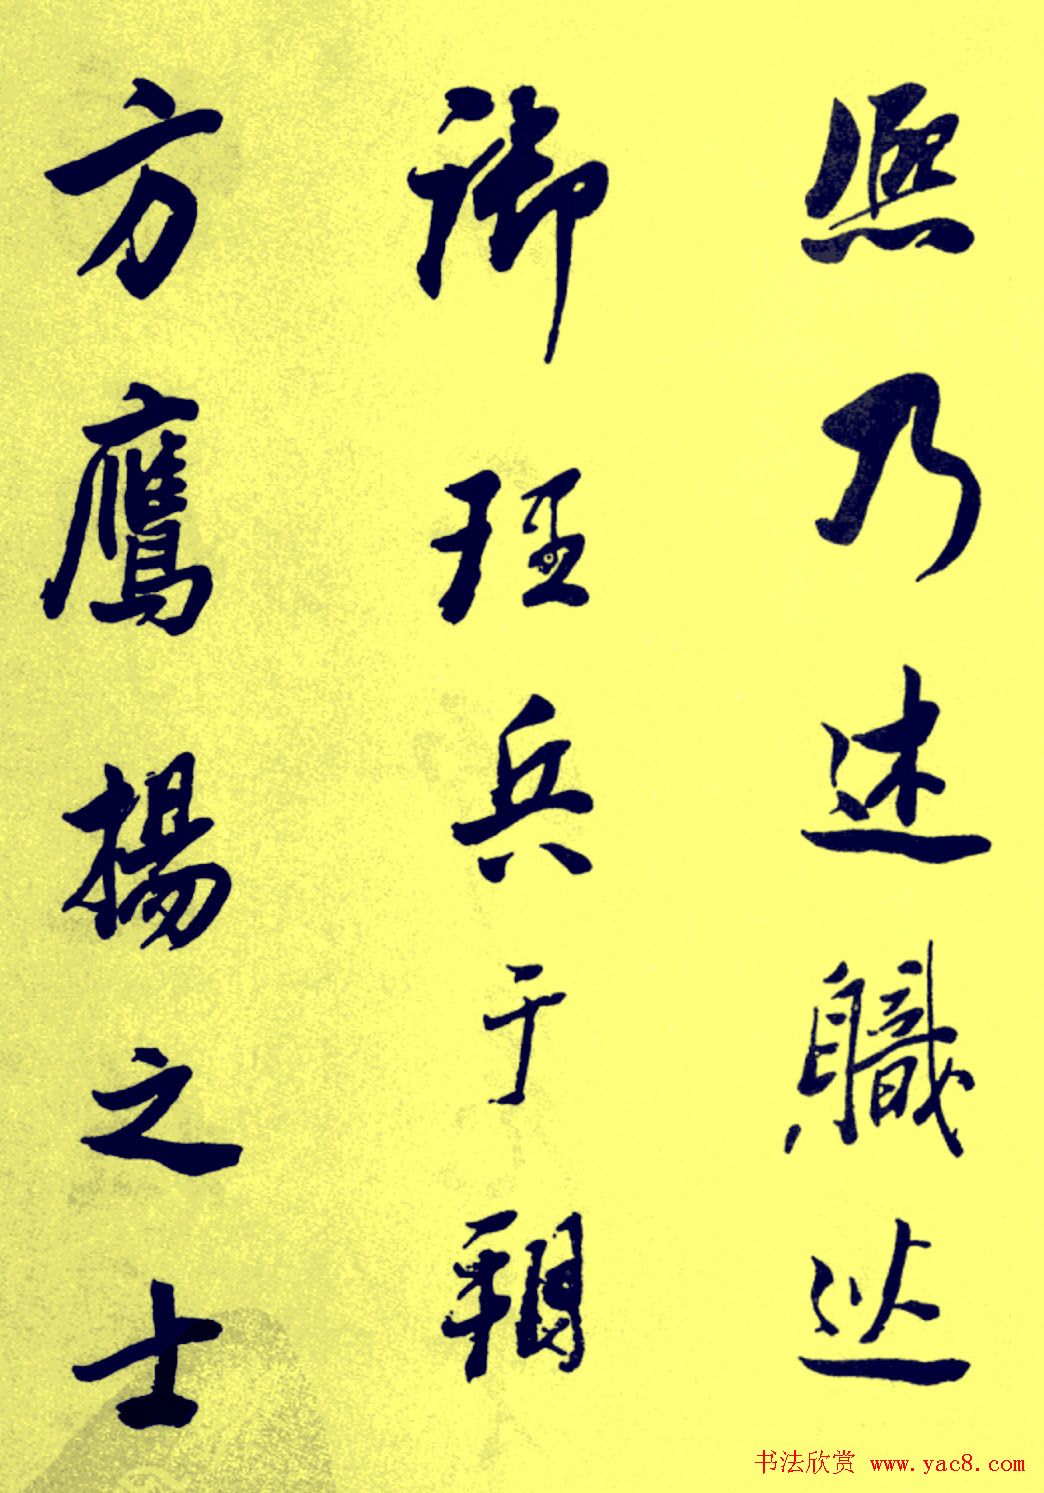 熙乃述職巡
御理兵于朔
方鷹揚之士
书法欣赏 www.yac8.com